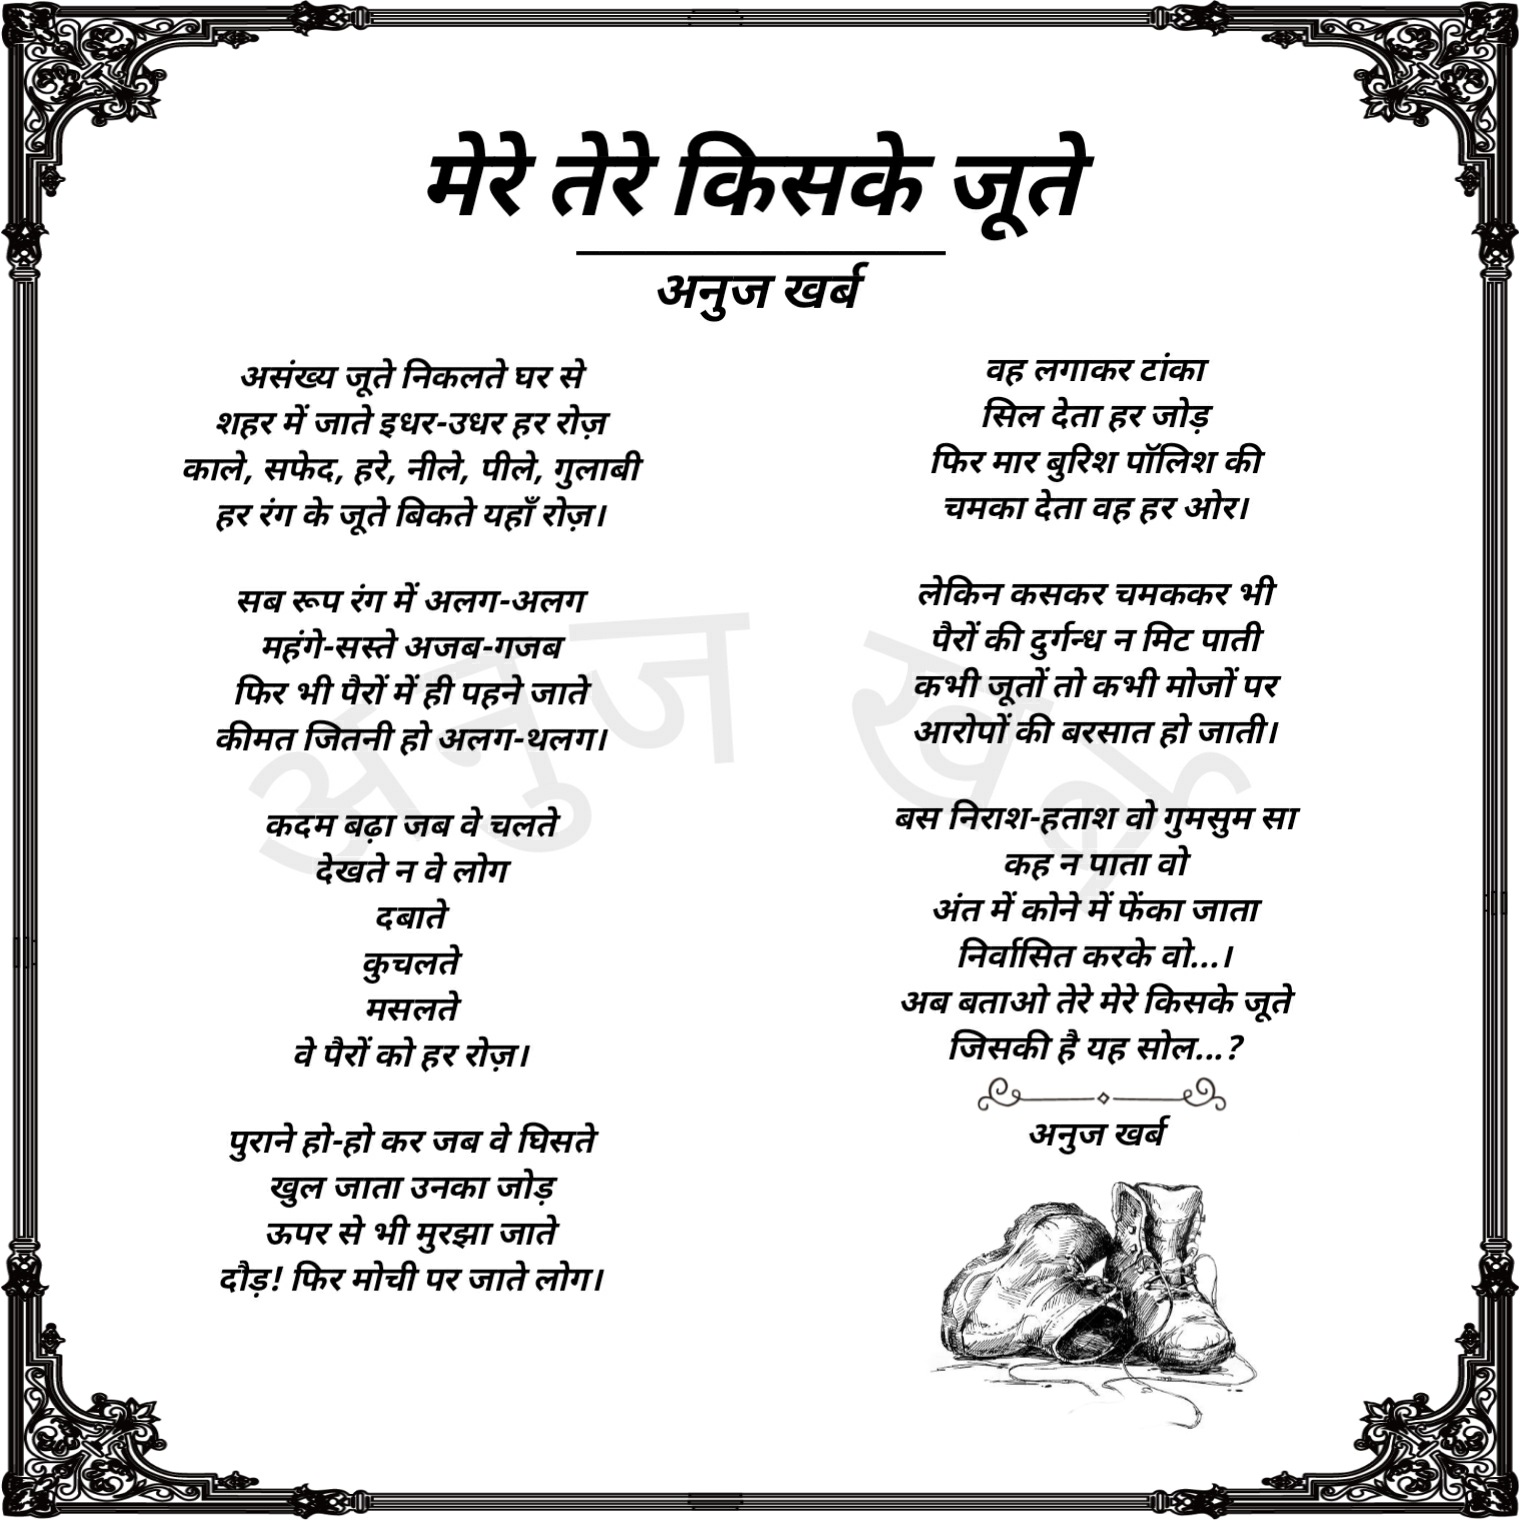 मेरे तेरे किसके जूते
अनुज खर्ब
असंख्य जूते निकलते घर से
शहर में जाते इधर-उधर हर रोज़
काले, सफेद, हरे, नीले, पीले, गुलाबी
हर रंग के जूते बिकते यहाँ रोज़।
सब रूप रंग में अलग-अलग
महंगे-सस्ते अजब-गजब
फिर भी पैरों में ही पहने जाते
कीमत जितनी हो अलग-थलग।
कदम बढ़ा जब वे चलते
देखते न वे लोग
दबाते
कुचलते
मसलते
वे पैरों को हर रोज़।
पुराने हो-हो कर जब वे घिसते
खुल जाता उनका जोड़
ऊपर से भी मुरझा जाते
दौड़! फिर मोची पर जाते लोग।
वह लगाकर टांका
सिल देता हर जोड़
फिर मार बुरिश पॉलिश की
चमका देता वह हर ओर।
लेकिन कसकर चमककर भी
पैरों की दुर्गन्ध न मिट पाती
कभी जूतों तो कभी मोजों पर
आरोपों की बरसात हो जाती।
बस निराश-हताश वो गुमसुम सा
कह न पाता वो
अंत में कोने में फेंका जाता
निर्वासित करके वो...।
अब बताओ तेरे मेरे किसके जूते
जिसकी है यह सोल...?
अनुज खर्ब
अनुज खर्ब